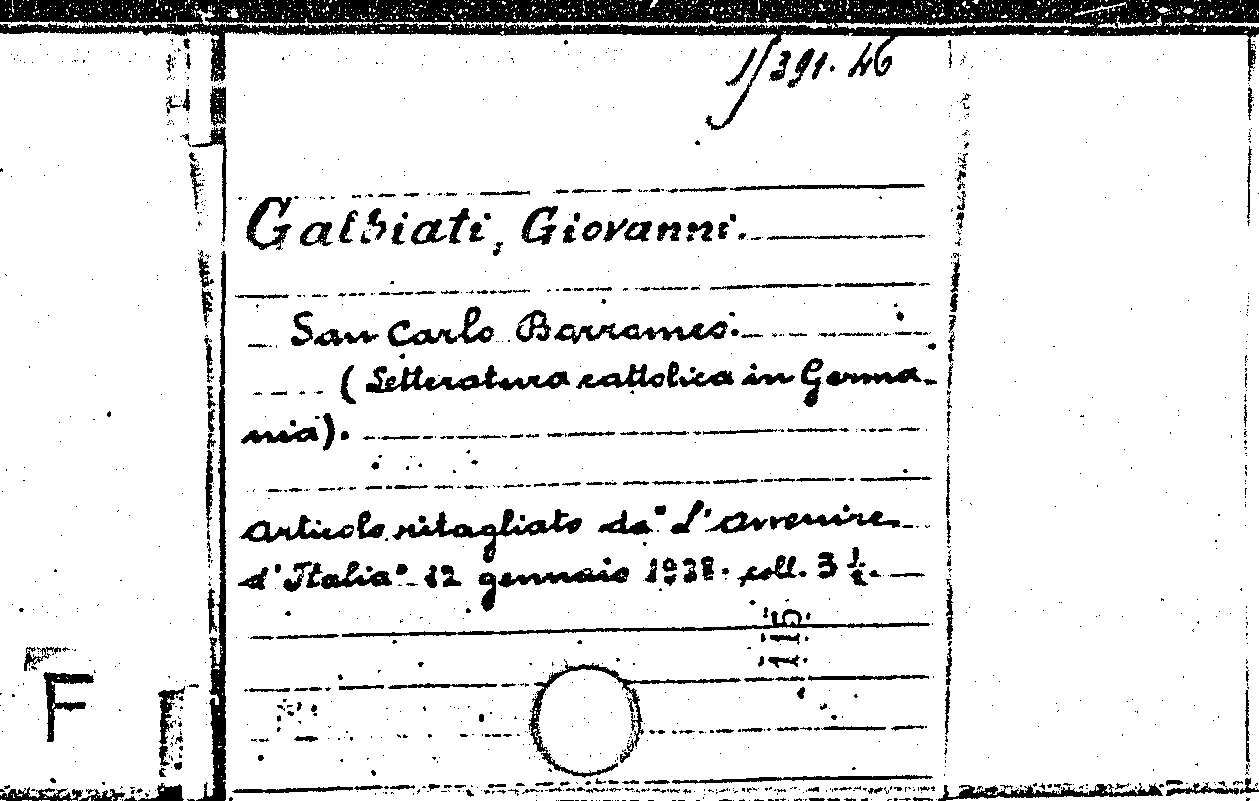 1/391.46
Galbiati, Giovanni.
San Carlo Borromeo.
(Letteratura cattolica in Germa-
nia).
Articolo ritagliato da "L'Avvenire
d'Italia" 12 gennaio 1938. coll. 3 ½.
115
F